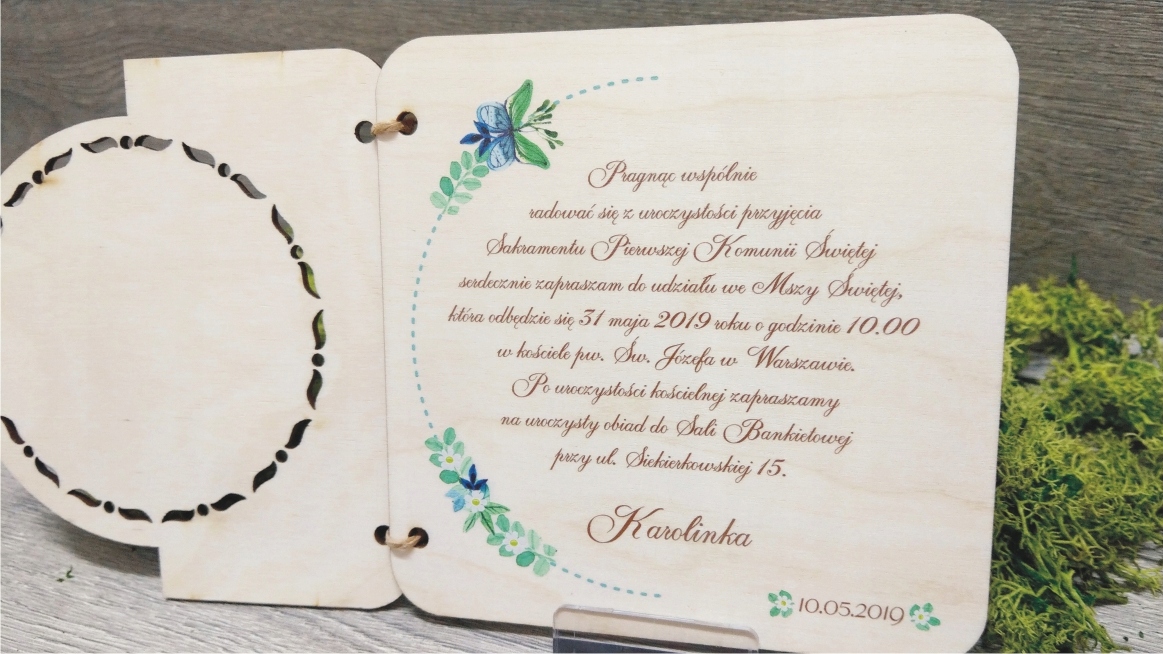 Pragnąc wspólnie
radować się z uroczystości przyjęcia
Sakramentu Pierwszej Komunii Świętej
serdecznie zapraszam do udziału we Mszy Świętej,
która odbędzie się 31 maja 2019 roku o godzinie 10.00
w kościele pw. Św. Józefa w Warszawie.
Po uroczystości kościelnej zapraszamy
na uroczysty obiad do Sali Bankietowej
przy ul. Siekierkowskiej 15.
Karolinka
10.05.2019